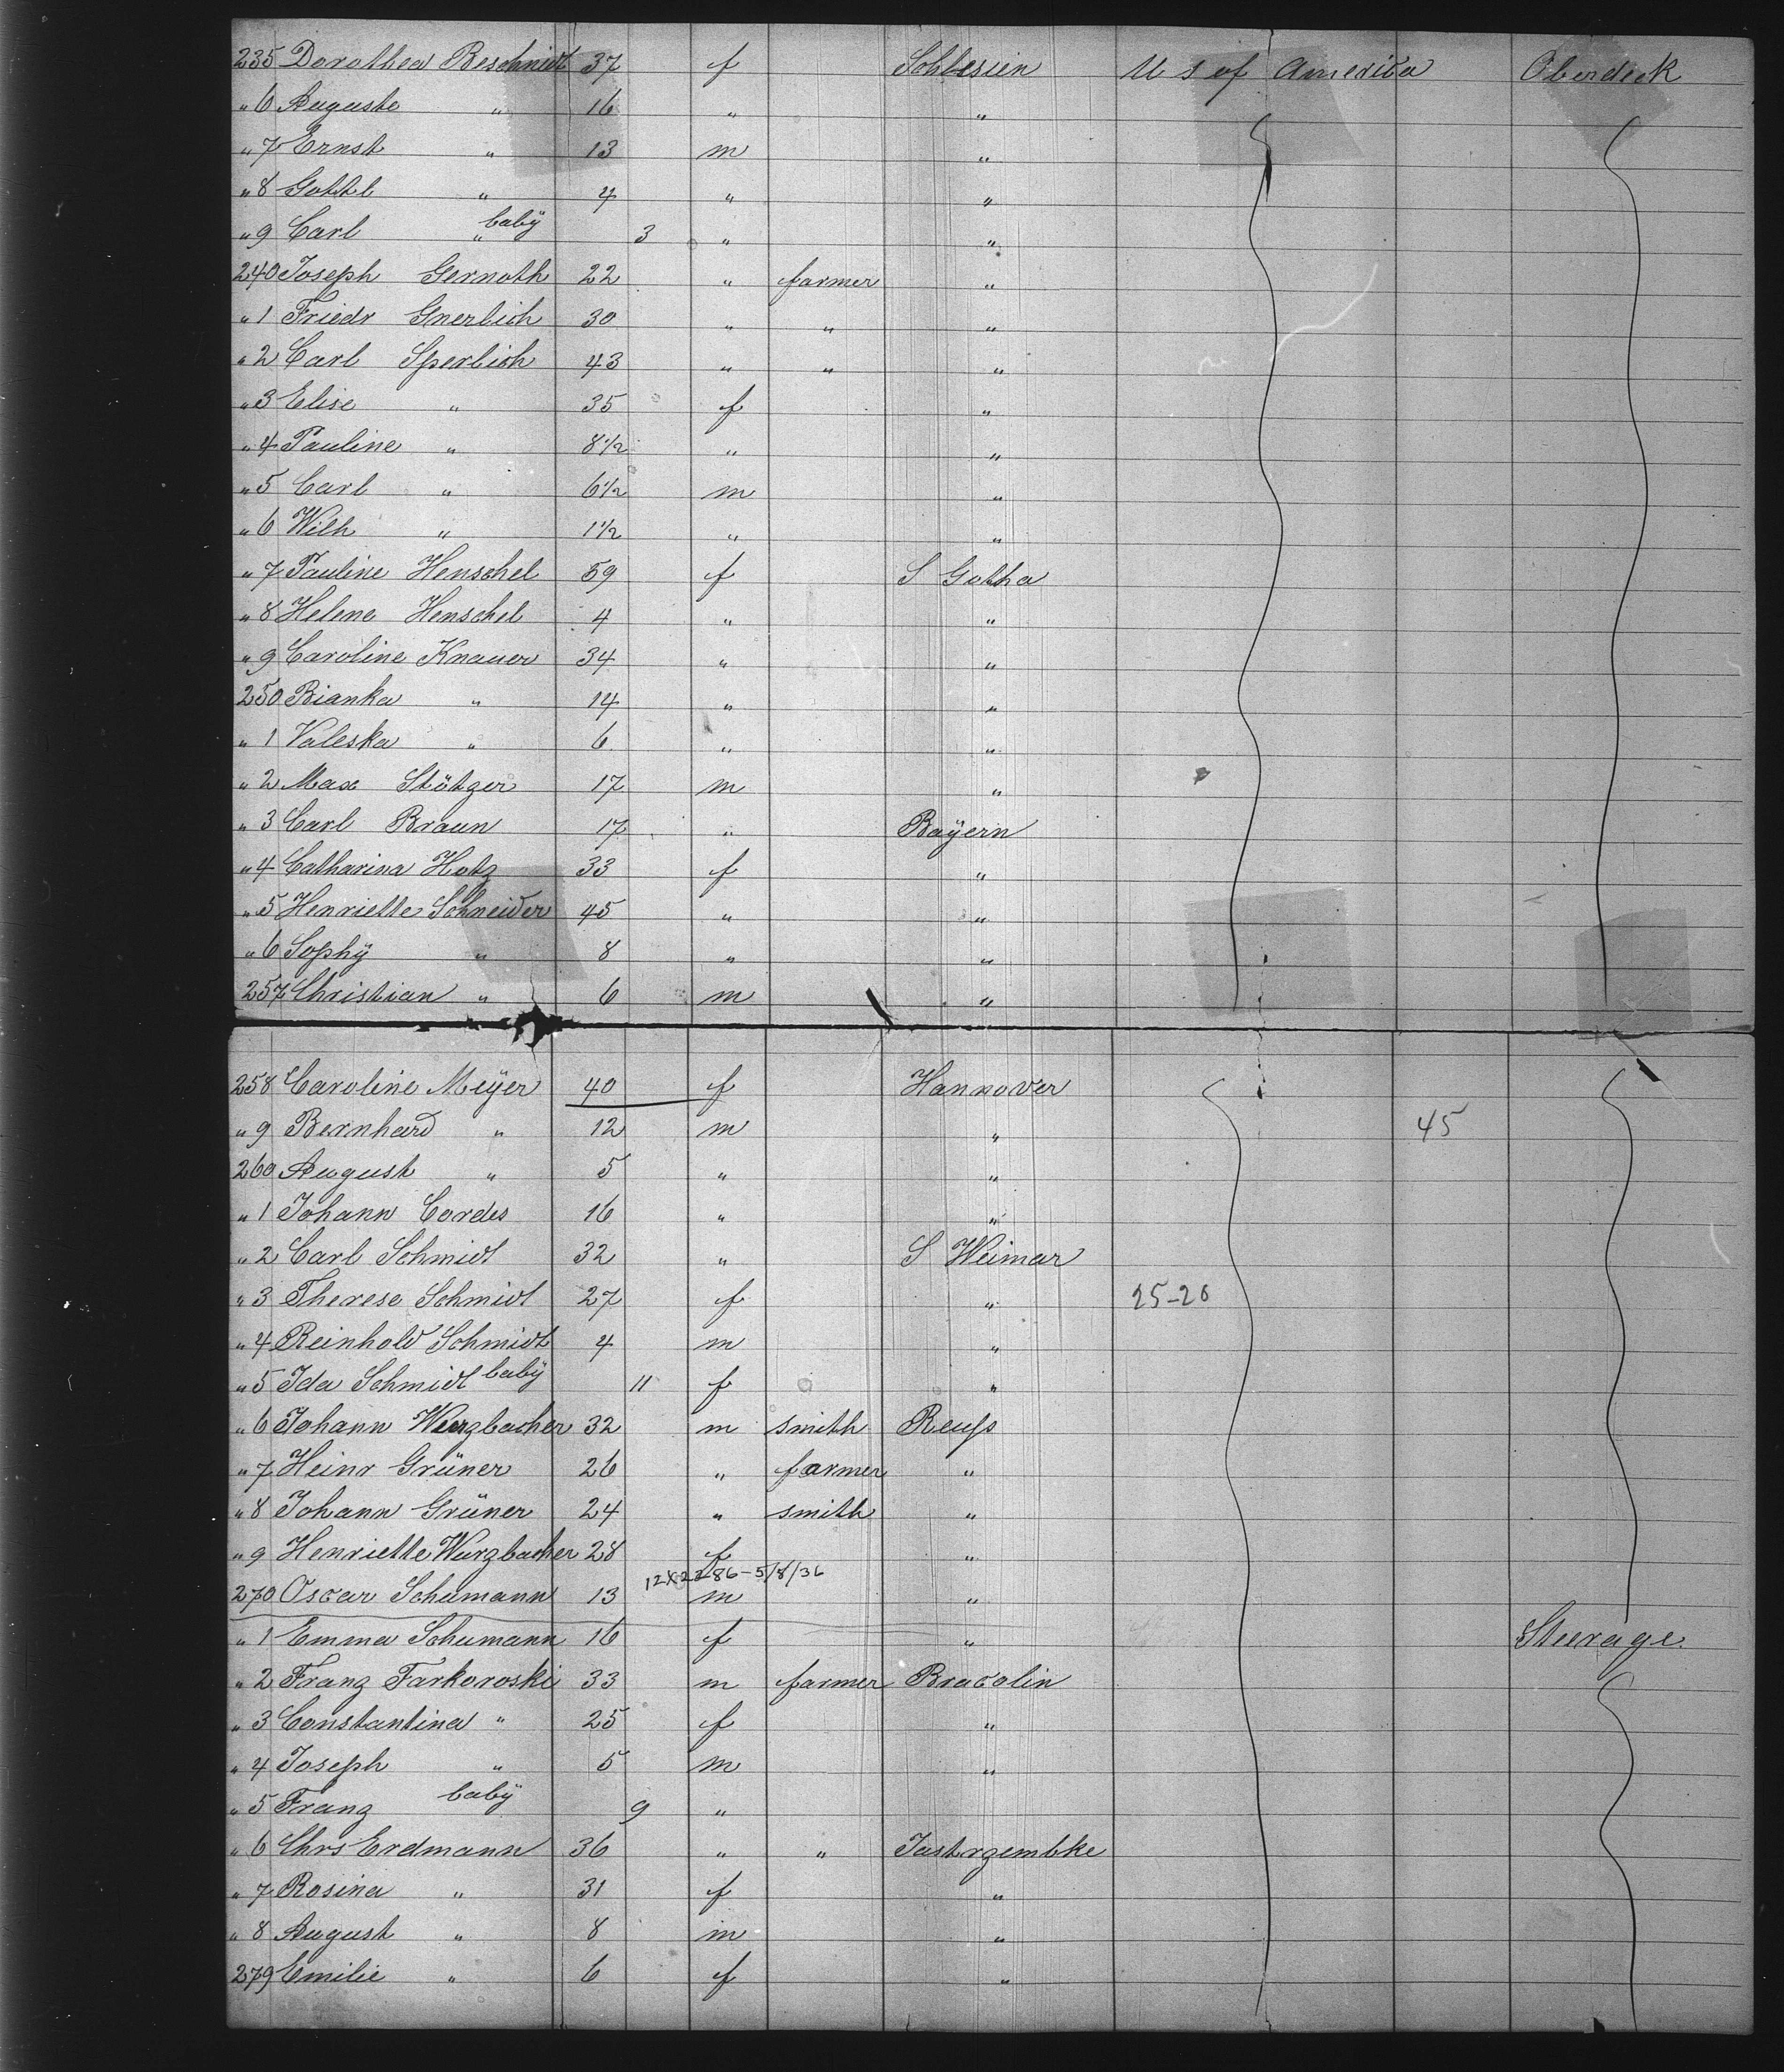 235 Dorothea Beschnidt 37 f Schlesien U S of America Oberdeck
" 6 Auguste " 16 " "
" 7 Ernst " 13 m "
" 8 Gottl " 4 " "
" 9 Carl " baby 3 " "
240 Joseph Gernoth 22 " farmer "
" 1 Friedr Gnerlich 30 " " "
" 2 Carl Sperlich 43 " " "
" 3 Elise " 35 f "
" 4 Pauline " 8 1/2 " "
" 5 Carl " 6 1/2 m "
" 6 Wilh " 1 1/2 " "
" 7 Pauline Henschel 59 f S Gotha
" 8 Helene Henschel 4 " "
" 9 Caroline Knauer 34 " "
250 Bianka " 14 " "
" 1 Valeska " 6 " "
" 2 Max Stötzer 17 m "
" 3 Carl Braun 17 " Baÿern
" 4 Catharina Hotz 33 f "
" 5 Henriette Schneider 45 " "
" 6 Sophÿ " 8 " "
257 Christian " 6 m "
258 Caroline Meÿer 40 f Hannover
" 9 Bernhard " 12 m " 45
260 August " 5 " "
" 1 Johann Cordes 16 " "
" 2 Carl Schmidt 32 " S Weimar
" 3 Therese Schmidt 27 f " 25-20
" 4 Reinhold Schmidt 4 m "
" 5 Ida Schmidt babÿ 11 f "
" 6 Johann Wurzbacher 32 m smith Reuß
" 7 Heinr Grüner 26 " farmer "
" 8 Johann Grüner 24 " smith "
" 9 Henriette Wurzbacher 28 f "
12X 86-5/8/36
270 Oscar Schumann 13 m "
" 1 Emma Schumann 16 f " Steerage
" 2 Franz Farkoroski 33 m farmer Bracolin
" 3 Constantina " 25 f "
" 4 Joseph " 5 m "
" 5 Franz babÿ 9 "
" 6 Chrs Erdmann 36 " " Jastrzembke
" 7 Rosina " 31 f "
" 8 August " 8 m "
279 Emilie " 6 f "